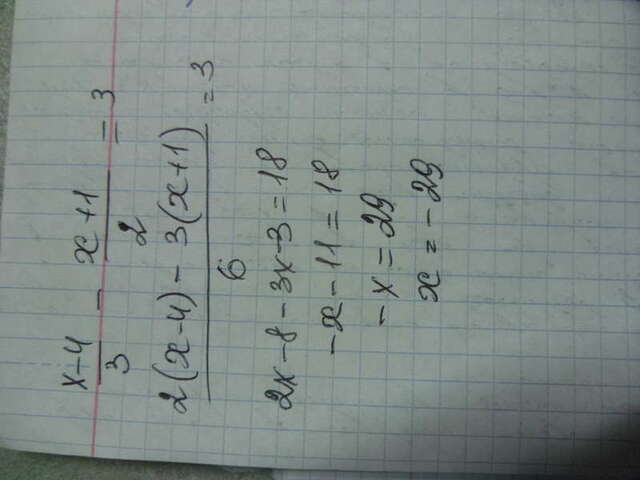 x-4/3 - x+1/2 = 3
2(x-4) - 3(x+1)/6 = 3
2x-8-3x-3=18
-x-11=18
-x=29
x=-29